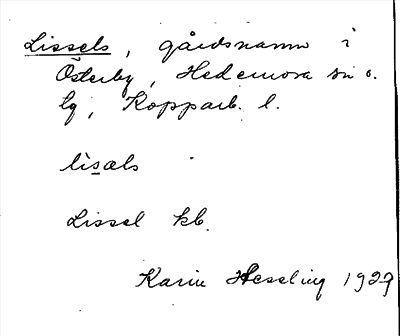 Lissels, gårdsnamn i
Österby, Hedemora sn o.
lg, Kopparb. l.
lìsals
Lissel kb.
Karin Hesseling 1927